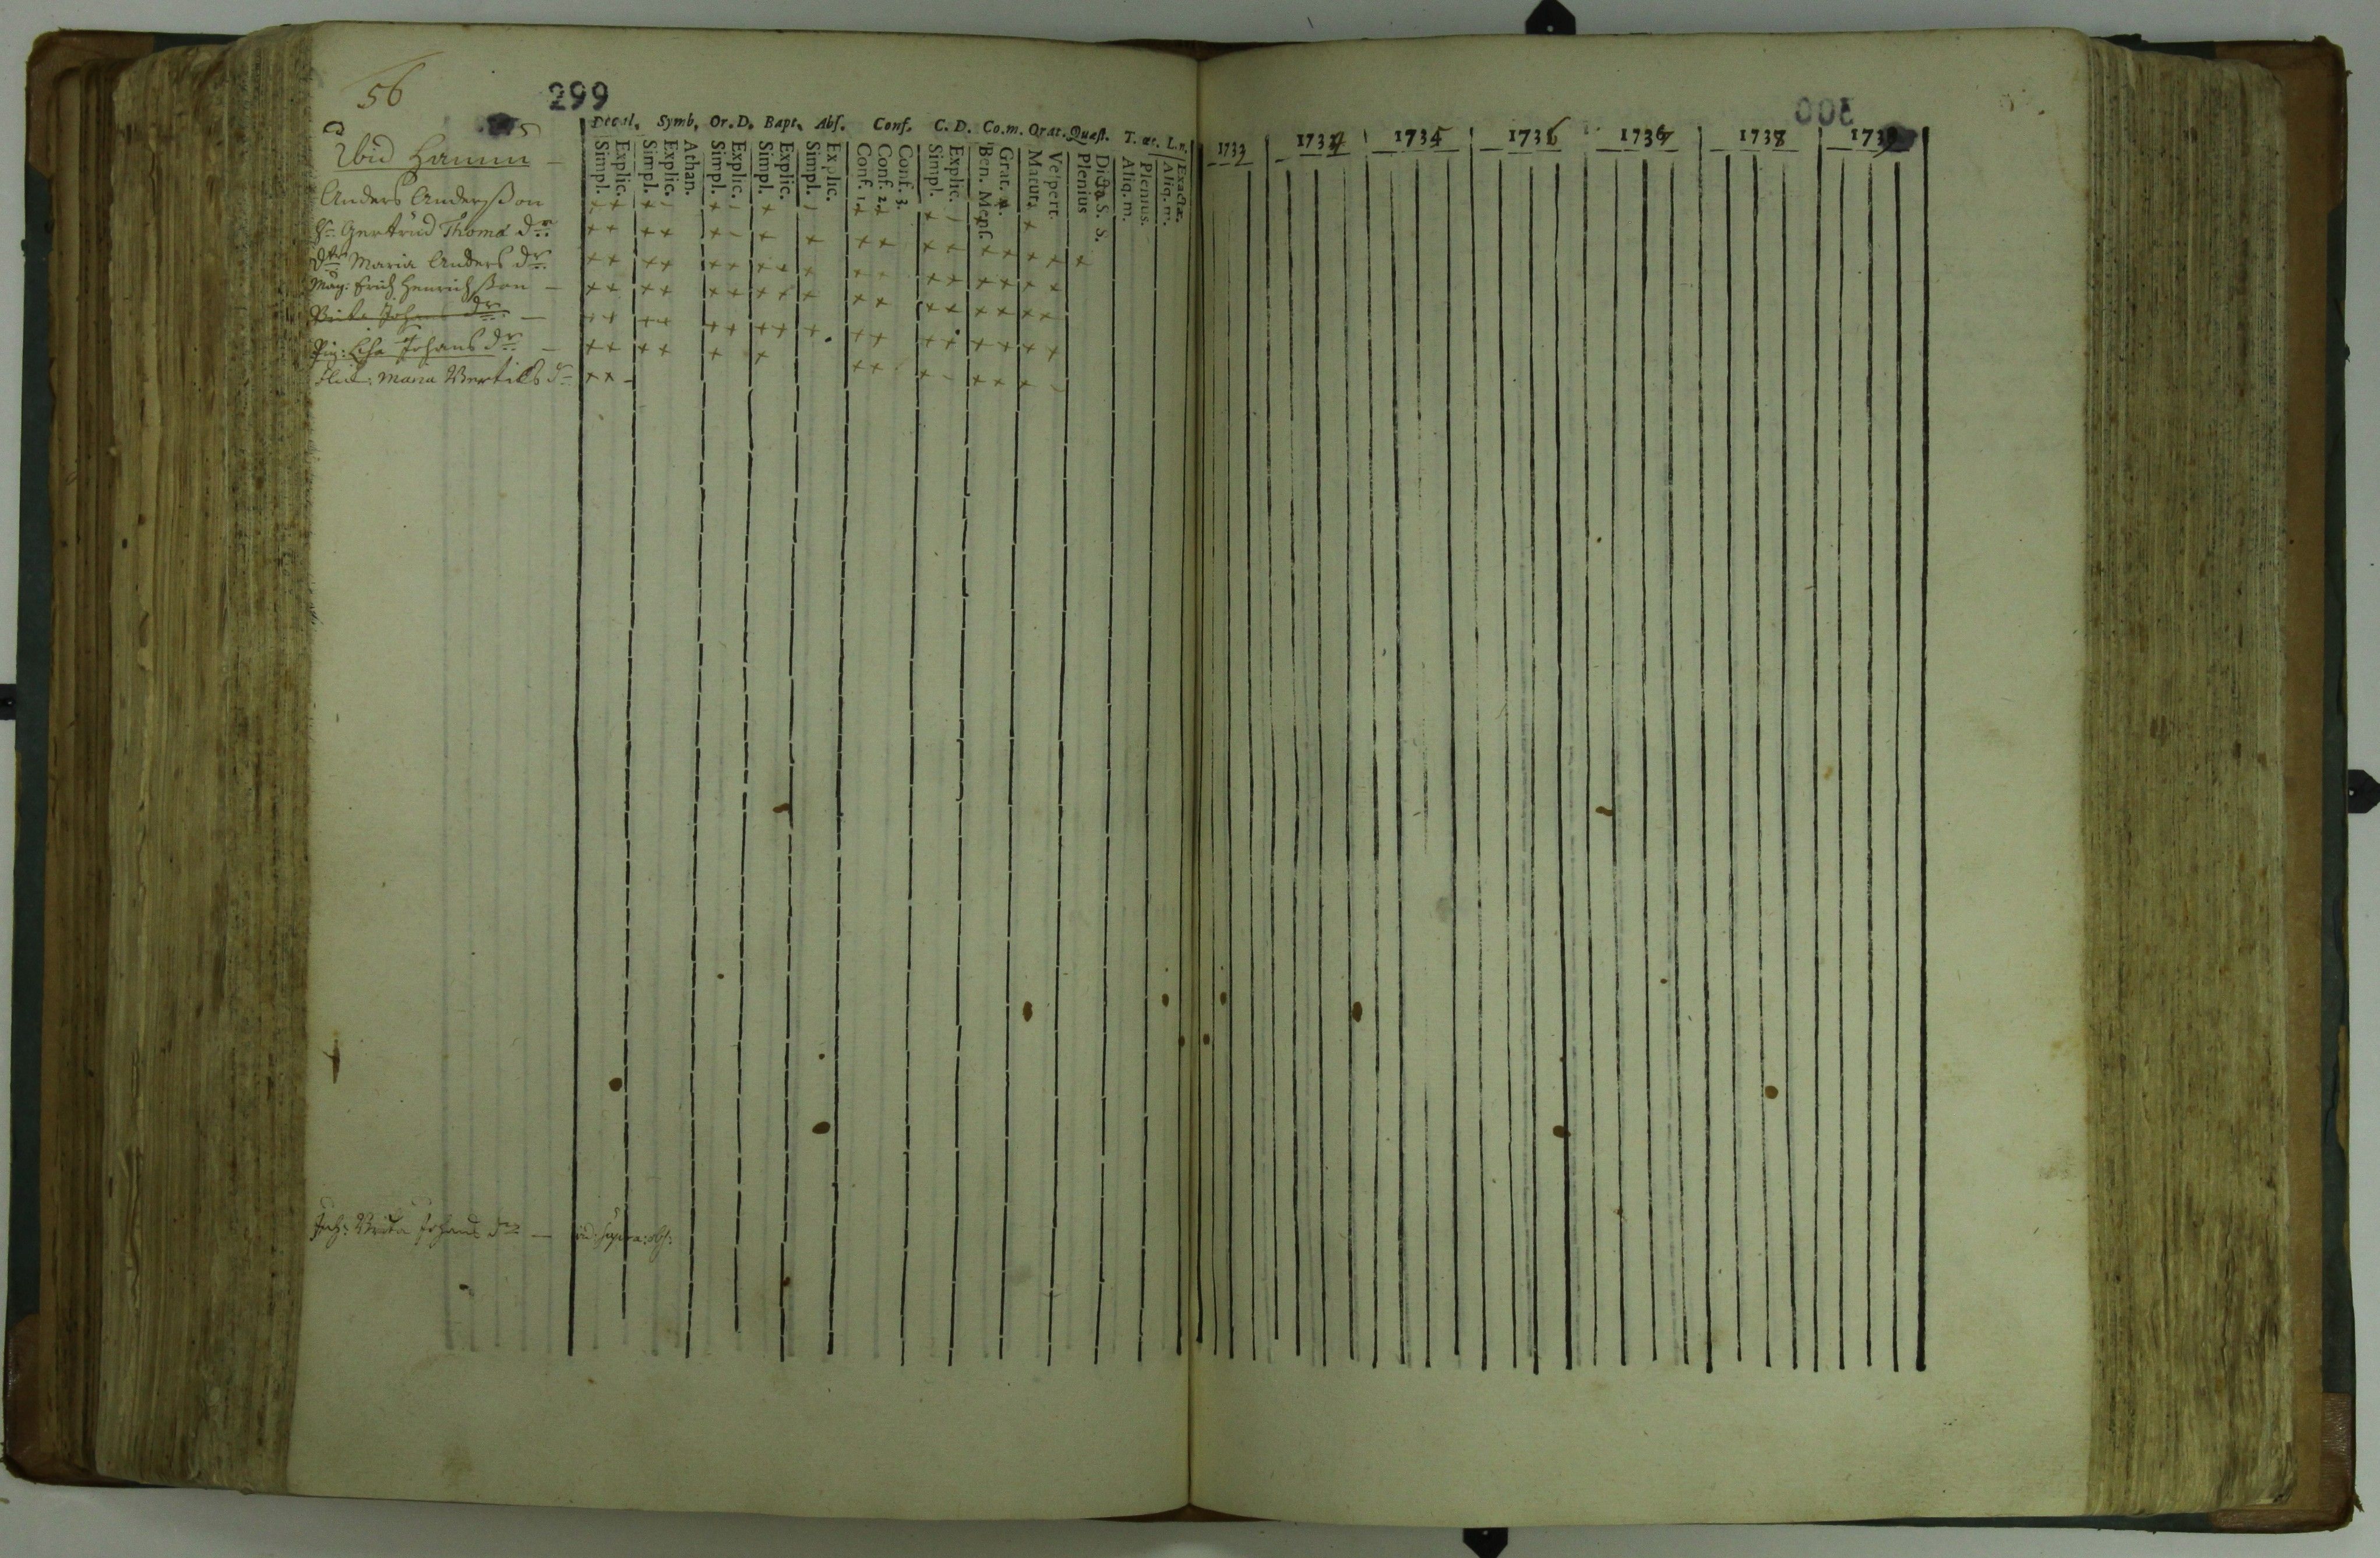 56
299
Decal. Symb. Or. D. Bapt. Abs. Conf. C. D. Co.m. Orat. Quæst. T. œc. L.n.
Simpl. Explic. Simpl. Explic. Athan. Simpl. Explic. Simpl. Explic. Simpl. Explic. Conf. 1. Conf. 2. Conf. 3. Simpl. Explic. Ben. Mens. Grat. a. Matut. Vespert. Plenius Dicta S. S. Aliq. m. Plenius. Aliq. m. Exactæ.
Ibid Hamnn
Anders Andersson
H. Gertrud Thomæ dr.
dtr Maria Anders dr.
Mag: Erich Henrichsson
Brita Johans dr.
Pig: Lisa Johans dr.
Maria Bertils dr
Inh: Brita Johans dr — vid: supra: obs:
300
1733 1734 1735 1736 1737 1738 1739